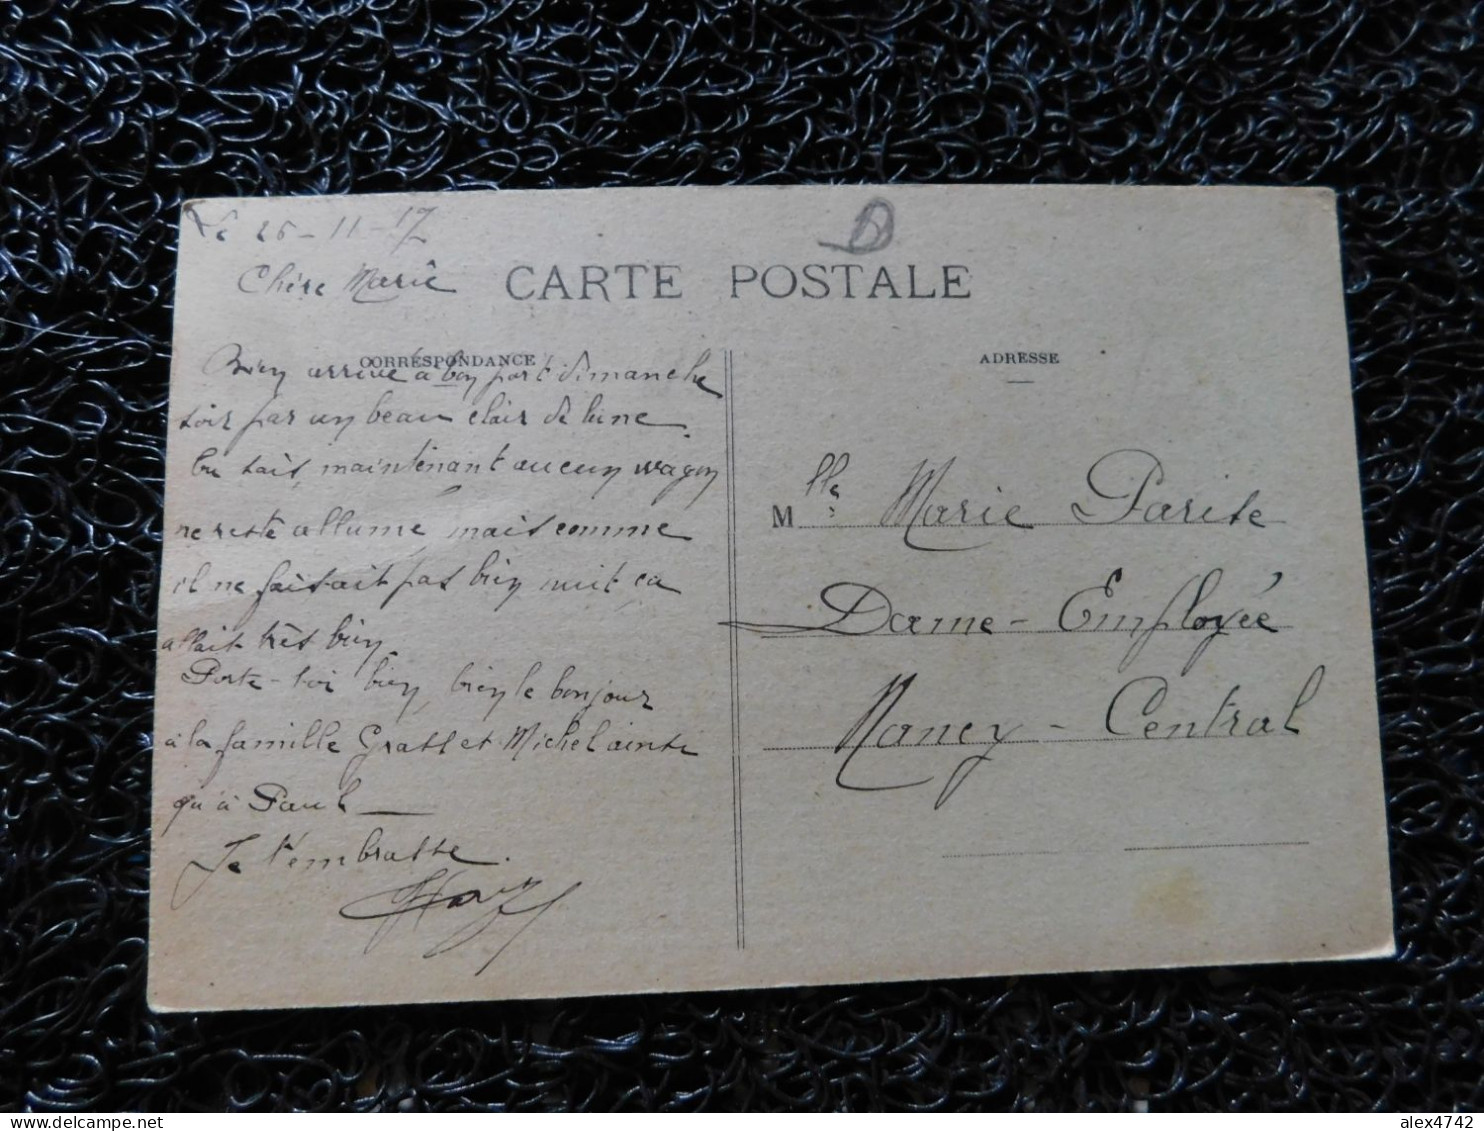 Le 26-11-17
Chère Marie
CARTE POSTALE
CORRESPONDANCE
ADRESSE
Bien arrivé à bon port dimanche
soir par un beau clair de lune.
Tu sais, maintenant aucun wagon
ne reste allumé mais comme
il ne faisait pas bien nuit ca
allait très bien
Porte-toi bien, bien le bonjour
à la famille Grass et Michel ainsi
qu'à Paul
Je t'embrasse.
Mlle Marie Parise
Dame-Employée
Nancy-Central
alex4742